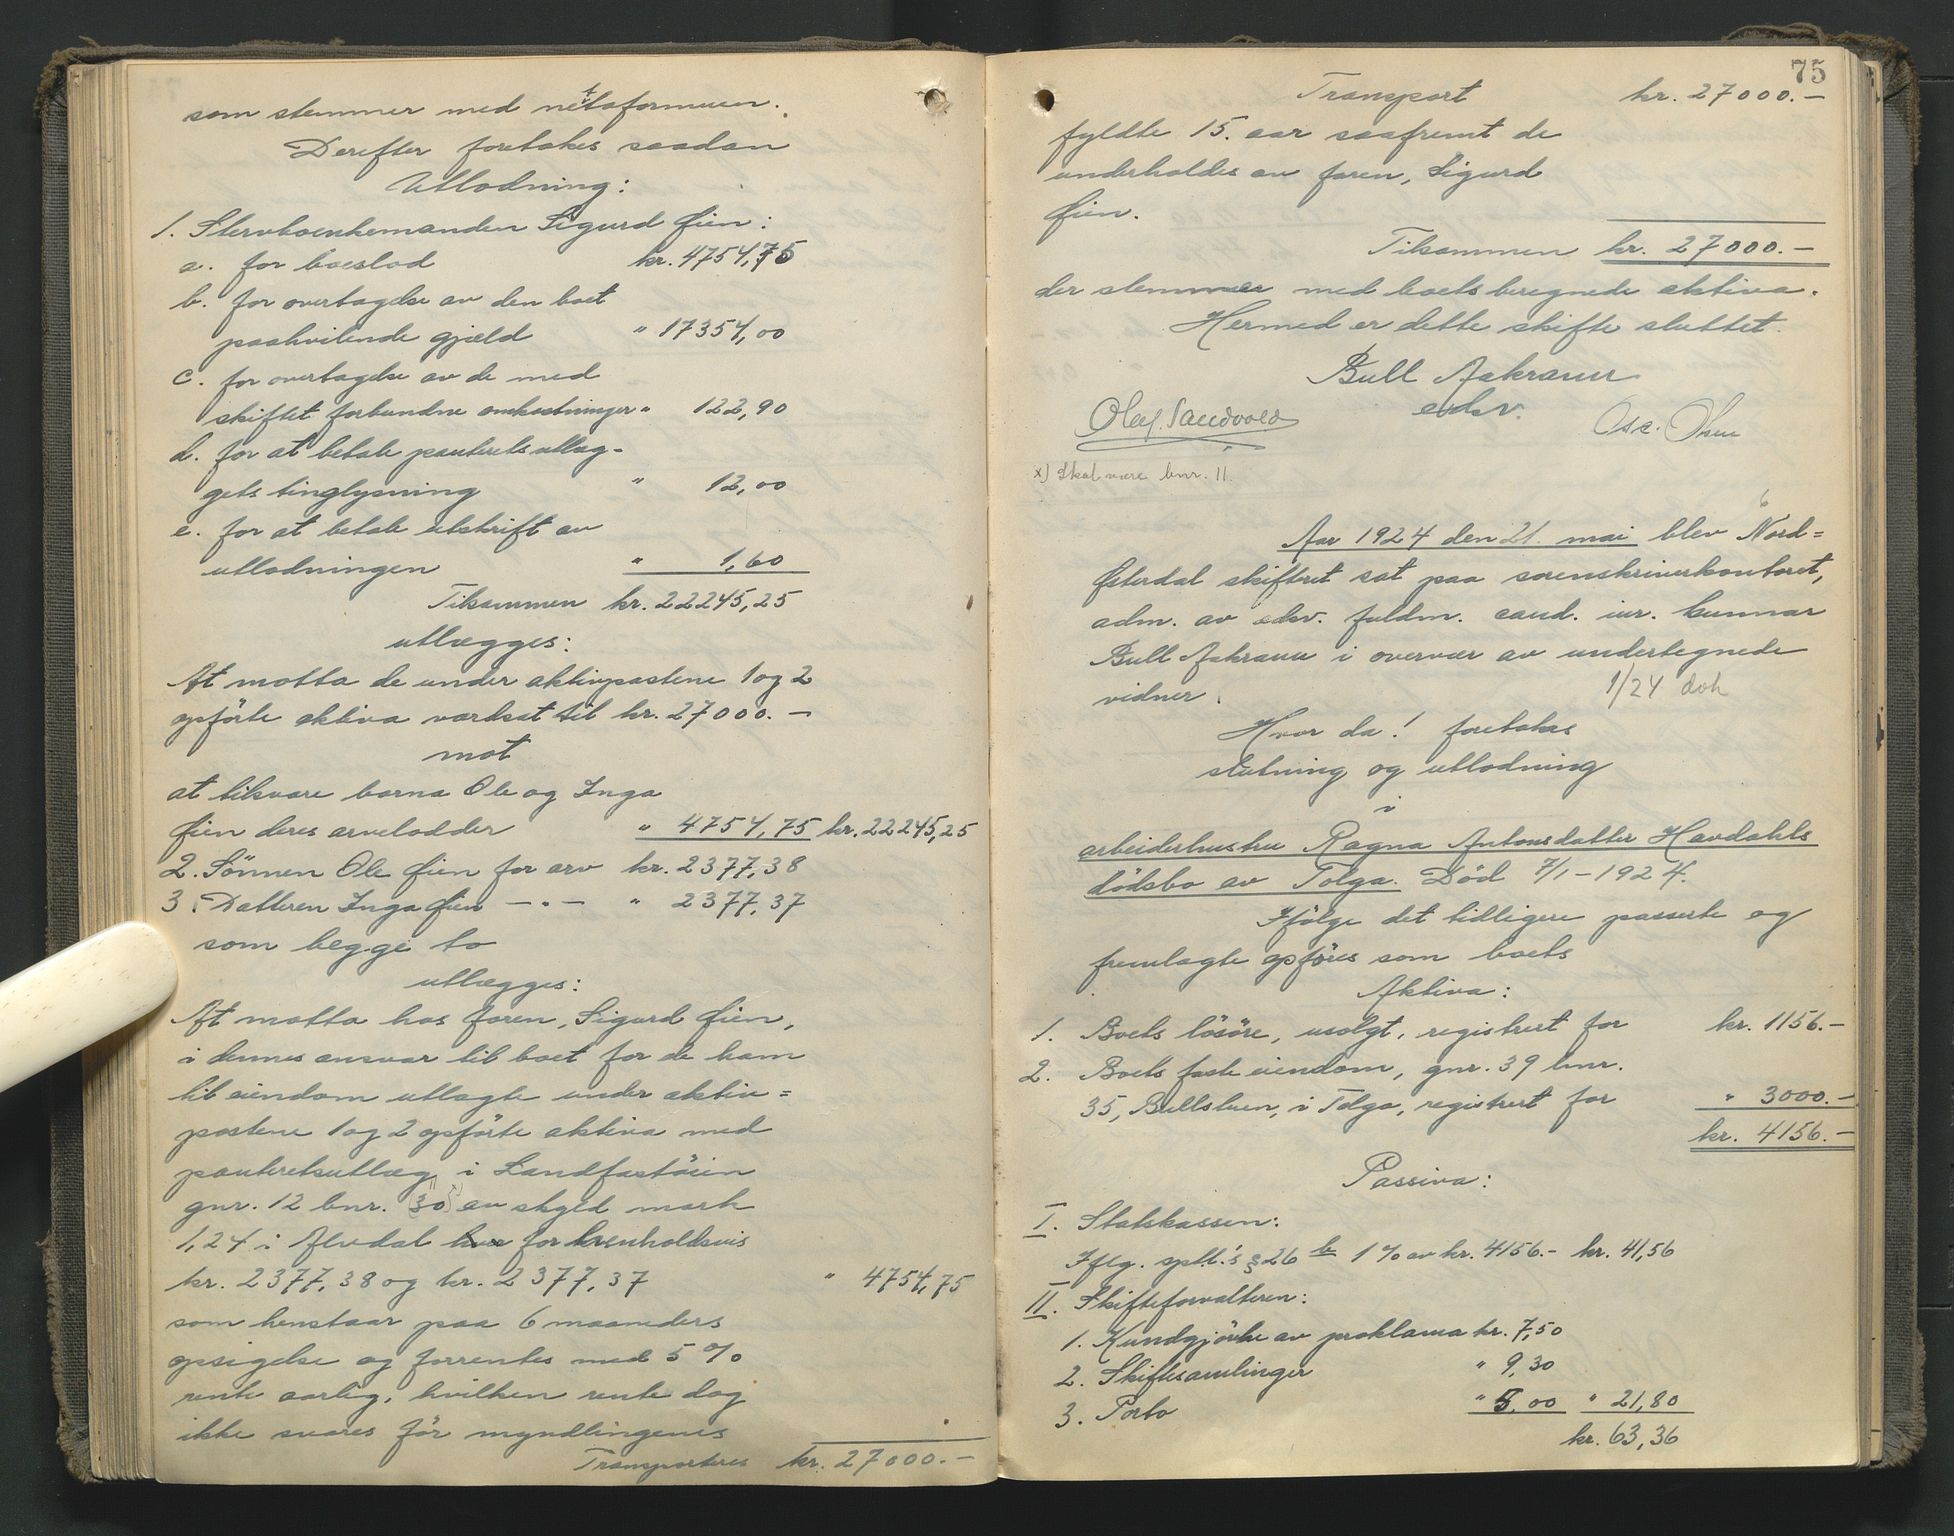 som stemmer med nettoformuen.
Derefter foretokes saadan
Utlodning:
1. Stervboenkemanden Sigurd Øien:
a. for boeslod kr. 4754,75
b. for overtagelse av den boet
paahvilende gjæld " 17354,00
c. for overtagelse av de med
skiftet forbundne omkostninger " 122,90
d. for at betale panteretsutlæg-
gets tinglysning " 12,00
e. for at betale utskrift av
utlodningen " 1,60
Tilsammen kr. 22245,25
utlægges:
At motta de under aktivpostene 1 og 2
opførte aktiva værdsat til kr. 27000.-
mot
at tilsvare barna Ole og Inga
Øien deres arvelodder " 4754,75 kr. 22245,25
2. Sönnen Ole Øien for arv kr. 2377,38
3. Datteren Inga Øien -"- " 2377,37
som begge to
utlægges:
At motta hos faren, Sigurd Øien,
i dennes ansvar til boet for de ham
til eiendom utlagte under aktiv=
postene 1 og 2 opførte aktiva med
panteretsutlæg i Landfastöien
gnr. 12 bnr. 30 x) av skyld mark
1,24 i Alvdal for henholdsvis
kr. 2377,38 og kr. 2377,37 " 4754,75
som henstaar paa 6 maaneders
opsigelse og forrentes med 5 %
rente aarlig, hvilken rente dog
ikke svares før myndlingenes
Transporteres kr. 27000.-
75
Transport kr. 27000.-
fyldte 15. aar saafremt de
underholdes av faren, Sigurd
Øien.
Tilsammen kr. 27000.-
der stemmer med boets beregnede aktiva.
Hermed er dette skifte sluttet.
Bull Aakrann
edsv.
Olaf Sandvold Osc. Olsen
x) Skal være bnr. 11.
6
Aar 1924 den 21. mai blev Nord=
Østerdal skifteret sat paa sorenskriverkontoret,
adm. av edsv. fuldm. cand. jur. Gunnar
Bull Aakrann i overvær av undertegnede
vidner.
1/24 dvh
Hvor da! foretokes
slutning og utlodning
i
arbeiderhustru Ragna Antonsdatter Havdahls
dödsbo av Tolga. Död 7/1-1924.
Ifølge det tidligere passerte og
fremlagte opføres som boets
Aktiva:
1. Boets lösöre, usolgt, registrert for kr. 1156.-
2. Boets faste eiendom, gnr. 39 bnr.
35, Bullstuen, i Tolga, registrert for " 3000.-
kr. 4156.-
Passiva:
I. Statskassen:
Iflg. sptl.'s § 26 b 1 % av kr. 4156.- kr. 41,56
II. Skifteforvalteren:
1. Kundgjörelse av proklama kr. 7,50
2. Skiftesamlinger " 9,30
3. Porto " 5,00 " 21,80
kr. 63,36